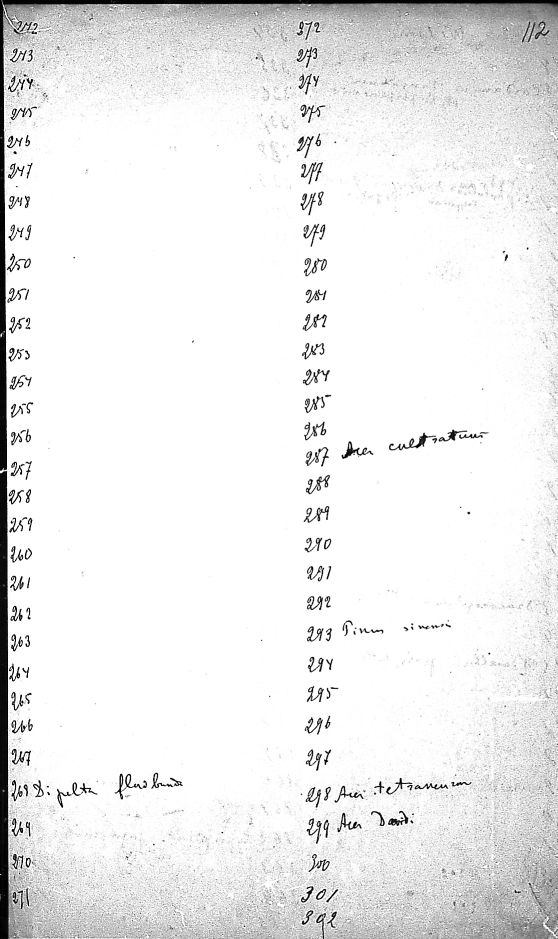 112
242
243
244
245
246
247
248
249
250
251
252
253
254
255
256
257
258
259
260
261
262
263
264
265
266
267
268 Dipelta floribunda
269
270
271
272
273
274
275
276
277
278
279
280
281
282
283
284
285
286
287 Acer cultratum
288
289
290
291
292
293 Pinus sinensis
294
295
296
297
298 Acer tetramerum
299 Acer Davidi
300
301
302